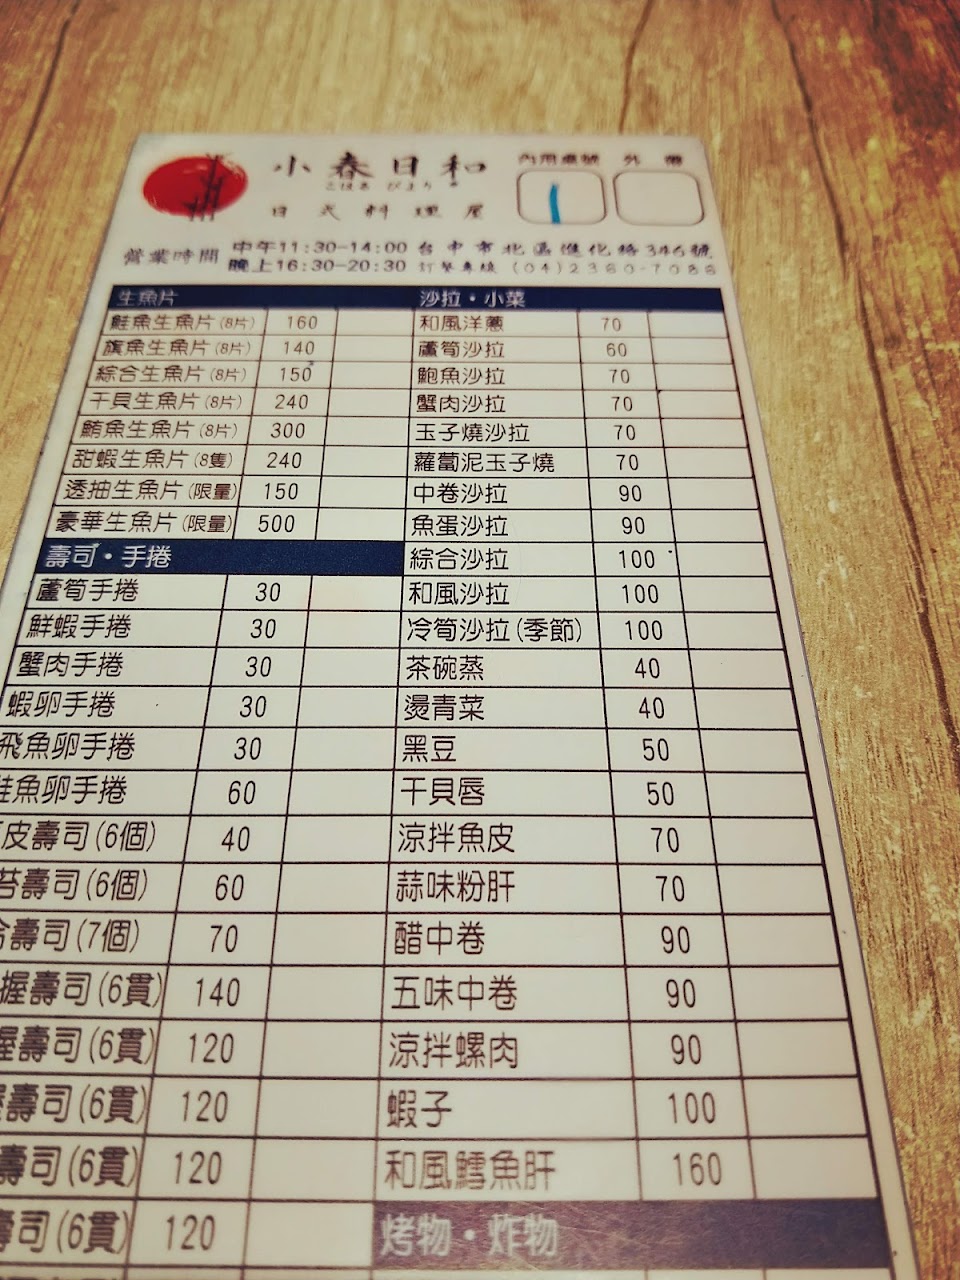 小春日和
こはる びより
日式料理屋
內用桌號 外帶
1
營業時間 中午11:30-14:00 台中市北區進化路346號
晚上16:30-20:30 訂餐專線 (04)2360-7088
生魚片 沙拉・小菜
鮭魚生魚片(8片) 160 和風洋蔥 70
旗魚生魚片(8片) 140 蘆筍沙拉 60
綜合生魚片(8片) 150 鮑魚沙拉 70
干貝生魚片(8片) 240 蟹肉沙拉 70
鮪魚生魚片(8片) 300 玉子燒沙拉 70
甜蝦生魚片(8隻) 240 蘿蔔泥玉子燒 70
透抽生魚片(限量) 150 中卷沙拉 90
豪華生魚片(限量) 500 魚蛋沙拉 90
壽司・手捲 綜合沙拉 100
蘆筍手捲 30 和風沙拉 100
鮮蝦手捲 30 冷筍沙拉(季節) 100
蟹肉手捲 30 茶碗蒸 40
蝦卵手捲 30 燙青菜 40
飛魚卵手捲 30 黑豆 50
鮭魚卵手捲 60 干貝唇 50
皮壽司(6個) 40 涼拌魚皮 70
苔壽司(6個) 60 蒜味粉肝 70
合壽司(7個) 70 醋中卷 90
握壽司(6貫) 140 五味中卷 90
握壽司(6貫) 120 涼拌螺肉 90
握壽司(6貫) 120 蝦子 100
壽司(6貫) 120 和風鱈魚肝 160
壽司(6貫) 120 烤物・炸物